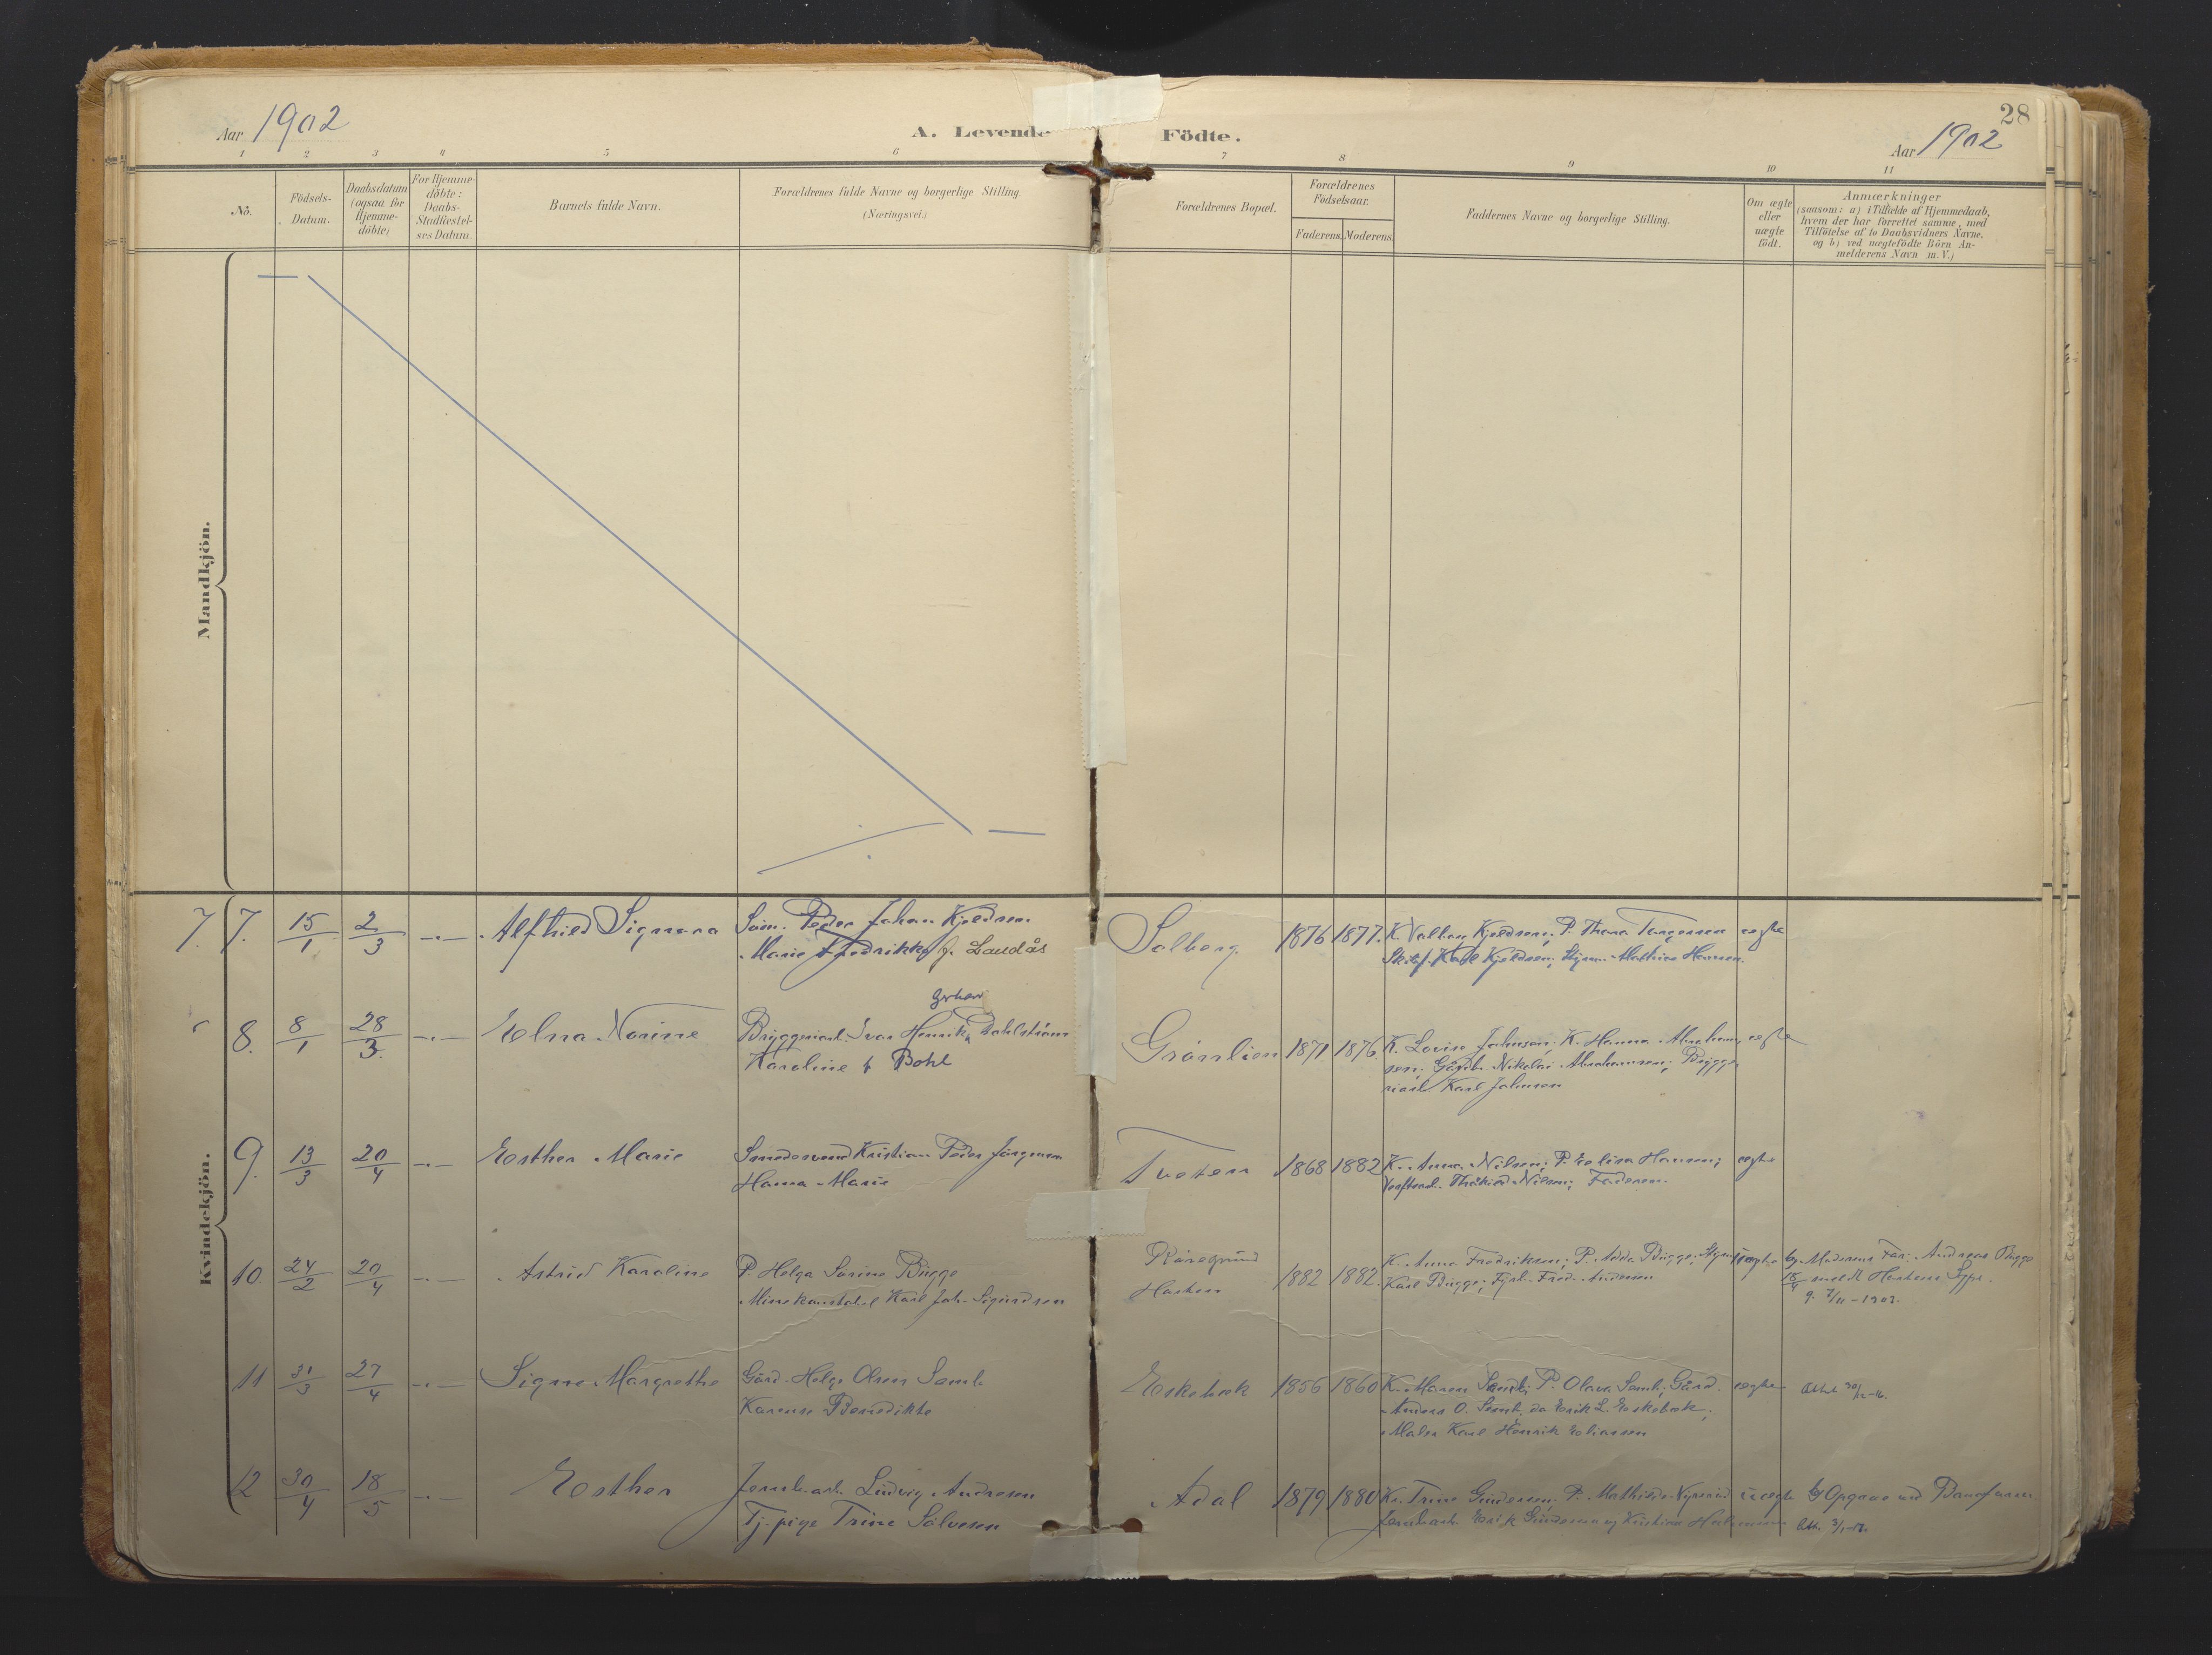 28
Aar 1902
A. Levende Födte.
Aar 1902
1 2 3 4 5 6 7 8 9 10 11
No.
Födsels-
Datum.
Daabsdatum
(ogsaa for
Hjemme-
döbte)
For Hjemme-
döbte:
Daabs-
Stadfæstel-
ses Datum.
Barnets fulde Navn.
Forældrenes fulde Navne og borgerlige Stilling.
(Næringsvei.)
Forældrenes Bopæl.
Forældrenes
Födselsaar.
Faderens. Moderens.
Faddernes Navne og borgerlige Stilling.
Om ægte
eller
uægte
födt.
Anmærkninger
(saasom: a) i Tilfælde af Hjemmedaab,
hvem der har forrettet samme, med
Tilföielse af to Daabsvidners Navne,
og b) ved uægtefödte Börn An-
melderens Navn m.V.)
Mandkjön.
Kvindekjön.
7. 7. 15/1 2/3 -"- Alfhild Signora
Søm. Peder Johan Kjeldsen
Marie Fredrikke f. Laudås
Solberg 1876 1877.
K. Valborg Kjeldsen; P. Thora
Karl Kjeldsen; Styrm. Mathias Hansen.
ægte
8. 8/1 28/3 -"- Elna Norine
Bryggeriarb. Ivar Henrik Dahlström
Karoline f. Bohl
Grönlien 1871 1876
K. Lovise Johnsen; K. Hanna Abraham
sen; Gårdb. Nikolai Abrahamsen; Brygge
riarb Karl Johnsen
ægte
9. 13/3 20/4 -"- Esther Marie
Smedesvend Kristian Peder Jörgensen
Hanna Marie
Tveten 1868 1882
K. Anna Nilsen; P. Elisa Hansen;
Verftsarb. Nilsen; Faderen.
ægte
10. 24/2 20/4 -"- Astrid Karoline
P. Helga Sorine Bugge
Minekonstabel Karl Joh. Sigurdsen
Röregrund
Horten
1882 1882.
K. Anna Fredriksen; P. Adda Bugge; Styrm
Karl Bugge; Fyrb. Fred. Andersen
uægte
Moderens Far: Andreas Bugge
18/4 meldt Hortens Spgs.
9. 7/11 - 1903.
11 31/3 27/4 -"- Signe Margrethe
Gård. Helge Olsen Semb
Karense Benedikte
Eskebæk 1856 1860
K. Maren Semb; P. Olava Semb; Gård.
Anders O. Semb, do Erik L. Eskebæk;
Maler Karl Henrik Eliassen
ægte
12 30/4 18/5 -"- Esther
Jernb.arb. Ludvig Andresen
Tj. pige Trine Sölvesen
Adal 1879 1880
K. Trine Gundersen; P. Mathilde
Jernb.arb. Erik Gundersen og Kristian
uægte
Opgave ved Barnefaren